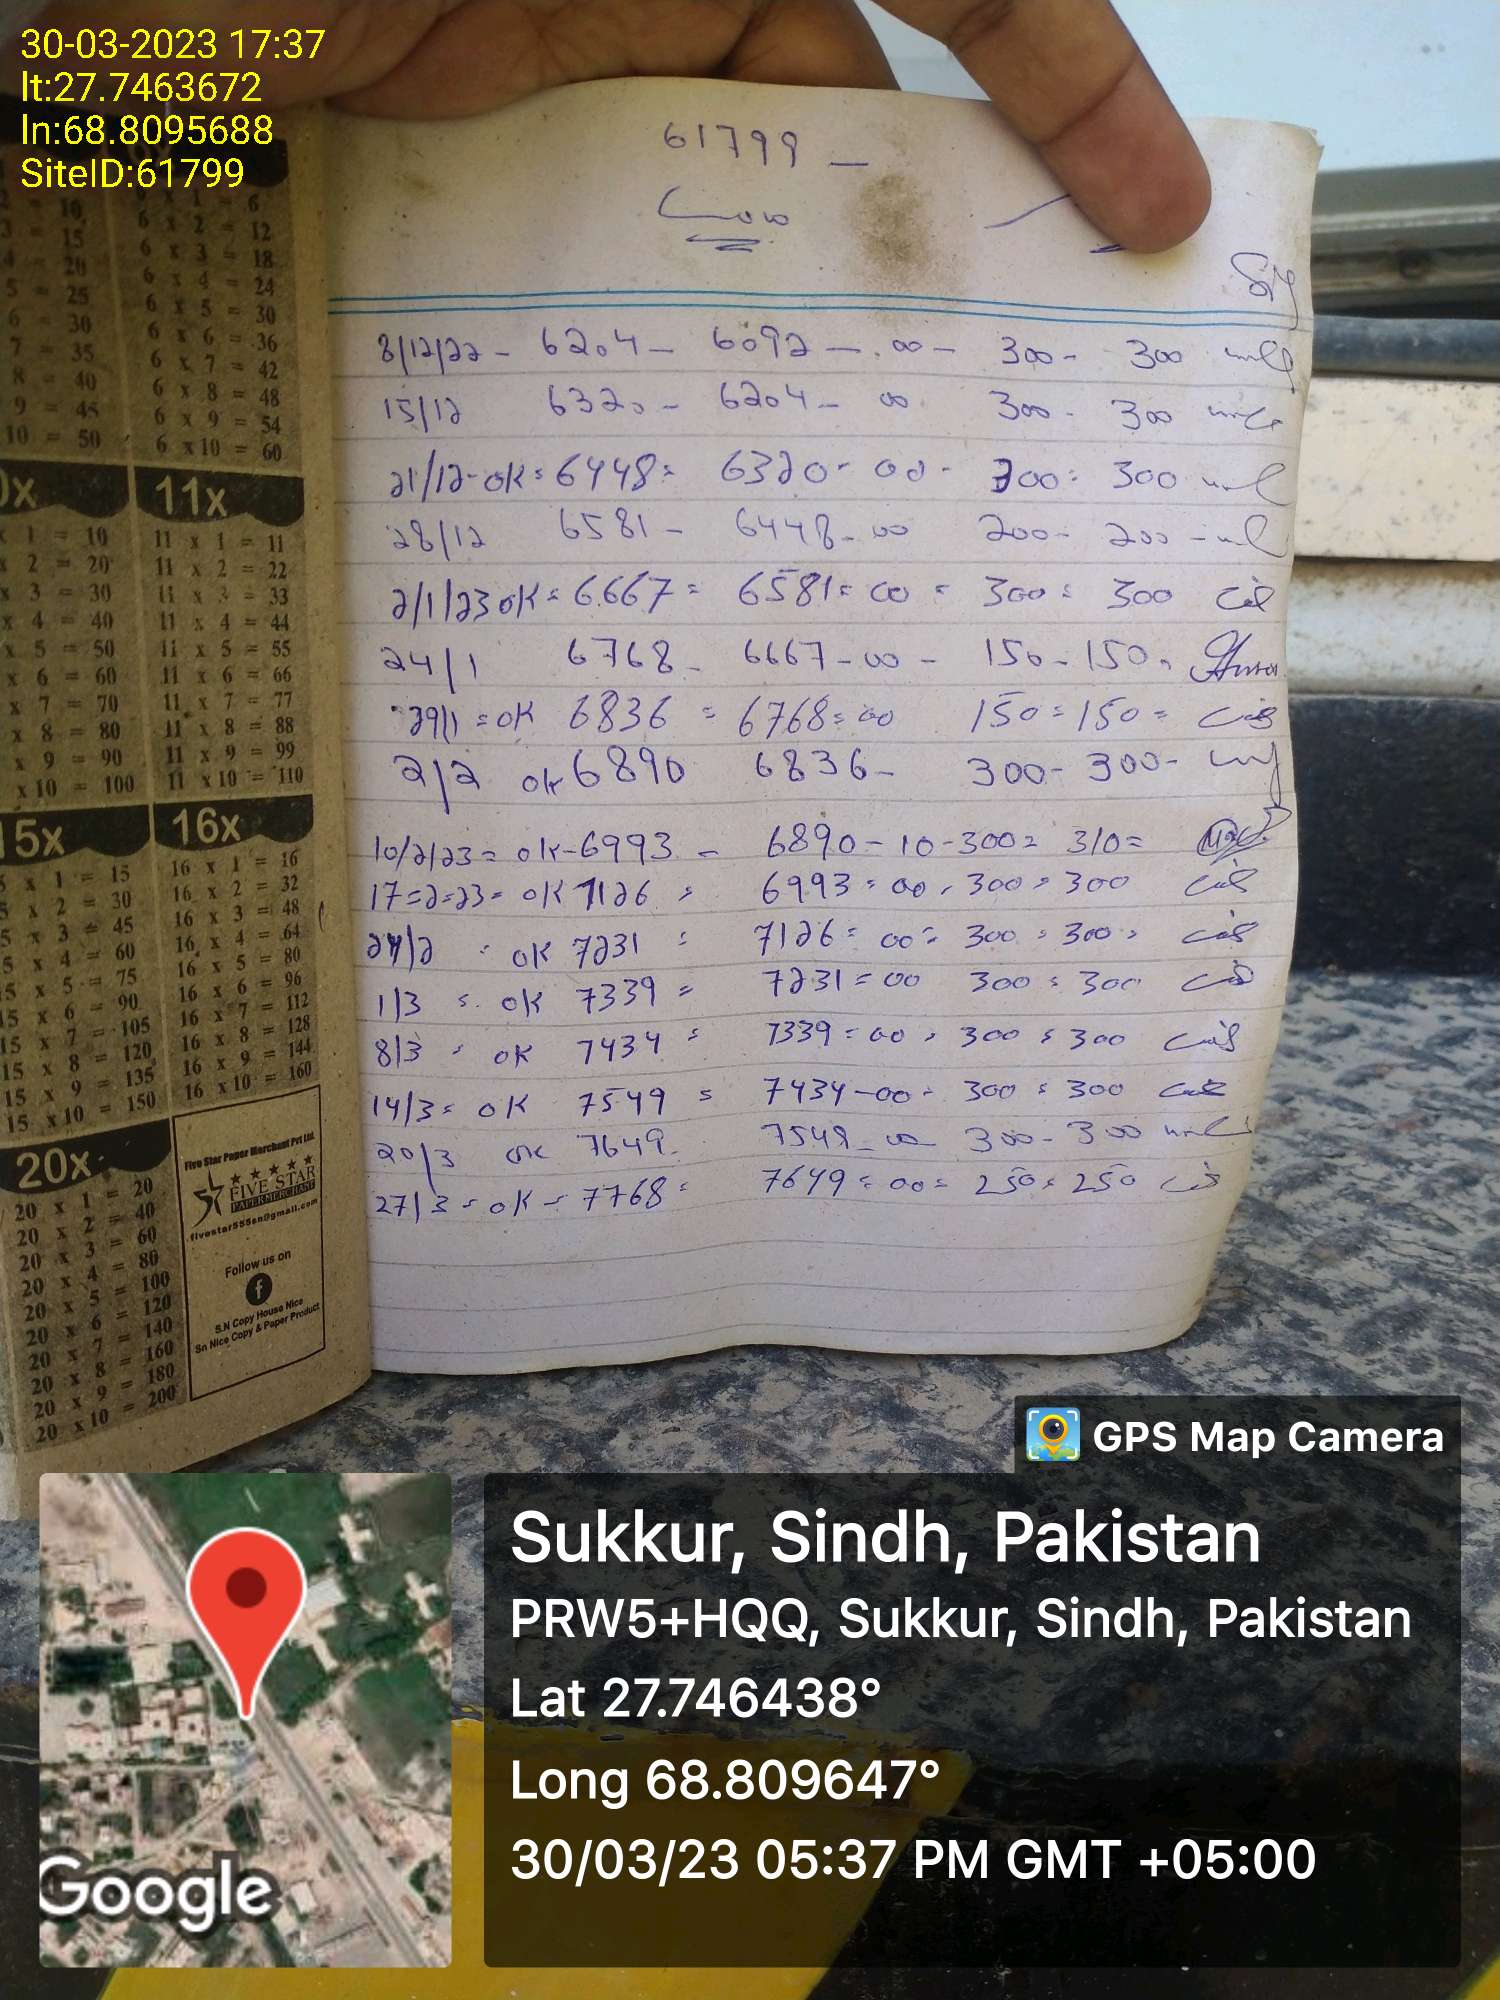 30-03-2023 17:37
lt:27.7463672
ln:68.8095688
SiteID:61799
61799 —
8/12/22 - 6204 - 6092 - 00 - 300 - 300
15/12 6320 - 6204 - 00 300 - 300
21/12 - OK = 6448 = 6320 - 00 - 300 = 300
28/12 6581 - 6448 - 00 200 - 200 -
2/1/23 OK = 6667 = 6581 = 00 = 300 = 300
24/1 6768 - 6667 - 00 - 150 - 150
29/1 = OK 6836 = 6768 = 00 150 = 150 =
2/2 OK 6890 6836 - 300 - 300 -
10/2/23 = OK - 6993 - 6890 - 10 - 300 = 310 =
17=2=23= OK 7126 = 6993 = 00 = 300 = 300
24/2 = OK 7231 = 7126 = 00 = 300 = 300
1/3 = OK 7339 = 7231 = 00 300 = 300
8/3 = OK 7434 = 7339 = 00 = 300 = 300
14/3 = OK 7549 = 7434 - 00 - 300 = 300
20/3 OK 7649 - 7549 - 00 300 - 300
27/3 = OK - 7768 = 7649 = 00 = 250 = 250
6 x 1 = 6
2 = 10 6 x 2 = 12
3 = 15 6 x 3 = 18
4 = 20 6 x 4 = 24
5 = 25 6 x 5 = 30
6 = 30 6 x 6 = 36
7 = 35 6 x 7 = 42
8 = 40 6 x 8 = 48
9 = 45 6 x 9 = 54
10 = 50 6 x 10 = 60
0x 11x
x 1 = 10 11 x 1 = 11
x 2 = 20 11 x 2 = 22
x 3 = 30 11 x 3 = 33
x 4 = 40 11 x 4 = 44
x 5 = 50 11 x 5 = 55
x 6 = 60 11 x 6 = 66
x 7 = 70 11 x 7 = 77
x 8 = 80 11 x 8 = 88
x 9 = 90 11 x 9 = 99
x 10 = 100 11 x 10 = 110
15x 16x
5 x 1 = 15 16 x 1 = 16
5 x 2 = 30 16 x 2 = 32
5 x 3 = 45 16 x 3 = 48
5 x 4 = 60 16 x 4 = 64
5 x 5 = 75 16 x 5 = 80
15 x 6 = 90 16 x 6 = 96
15 x 7 = 105 16 x 7 = 112
15 x 8 = 120 16 x 8 = 128
15 x 9 = 135 16 x 9 = 144
15 x 10 = 150 16 x 10 = 160
20x
20 x 1 = 20
20 x 2 = 40
20 x 3 = 60
20 x 4 = 80
20 x 5 = 100
20 x 6 = 120
20 x 7 = 140
20 x 8 = 160
20 x 9 = 180
20 x 10 = 200
Five Star Paper Merchant Pvt Ltd.
FIVE STAR
PAPER MERCHANT
fivestar555sn@gmail.com
Follow us on
f
S.N Copy House Nice
Sn Nice Copy & Paper Product
GPS Map Camera
Sukkur, Sindh, Pakistan
PRW5+HQQ, Sukkur, Sindh, Pakistan
Lat 27.746438°
Long 68.809647°
30/03/23 05:37 PM GMT +05:00
Google